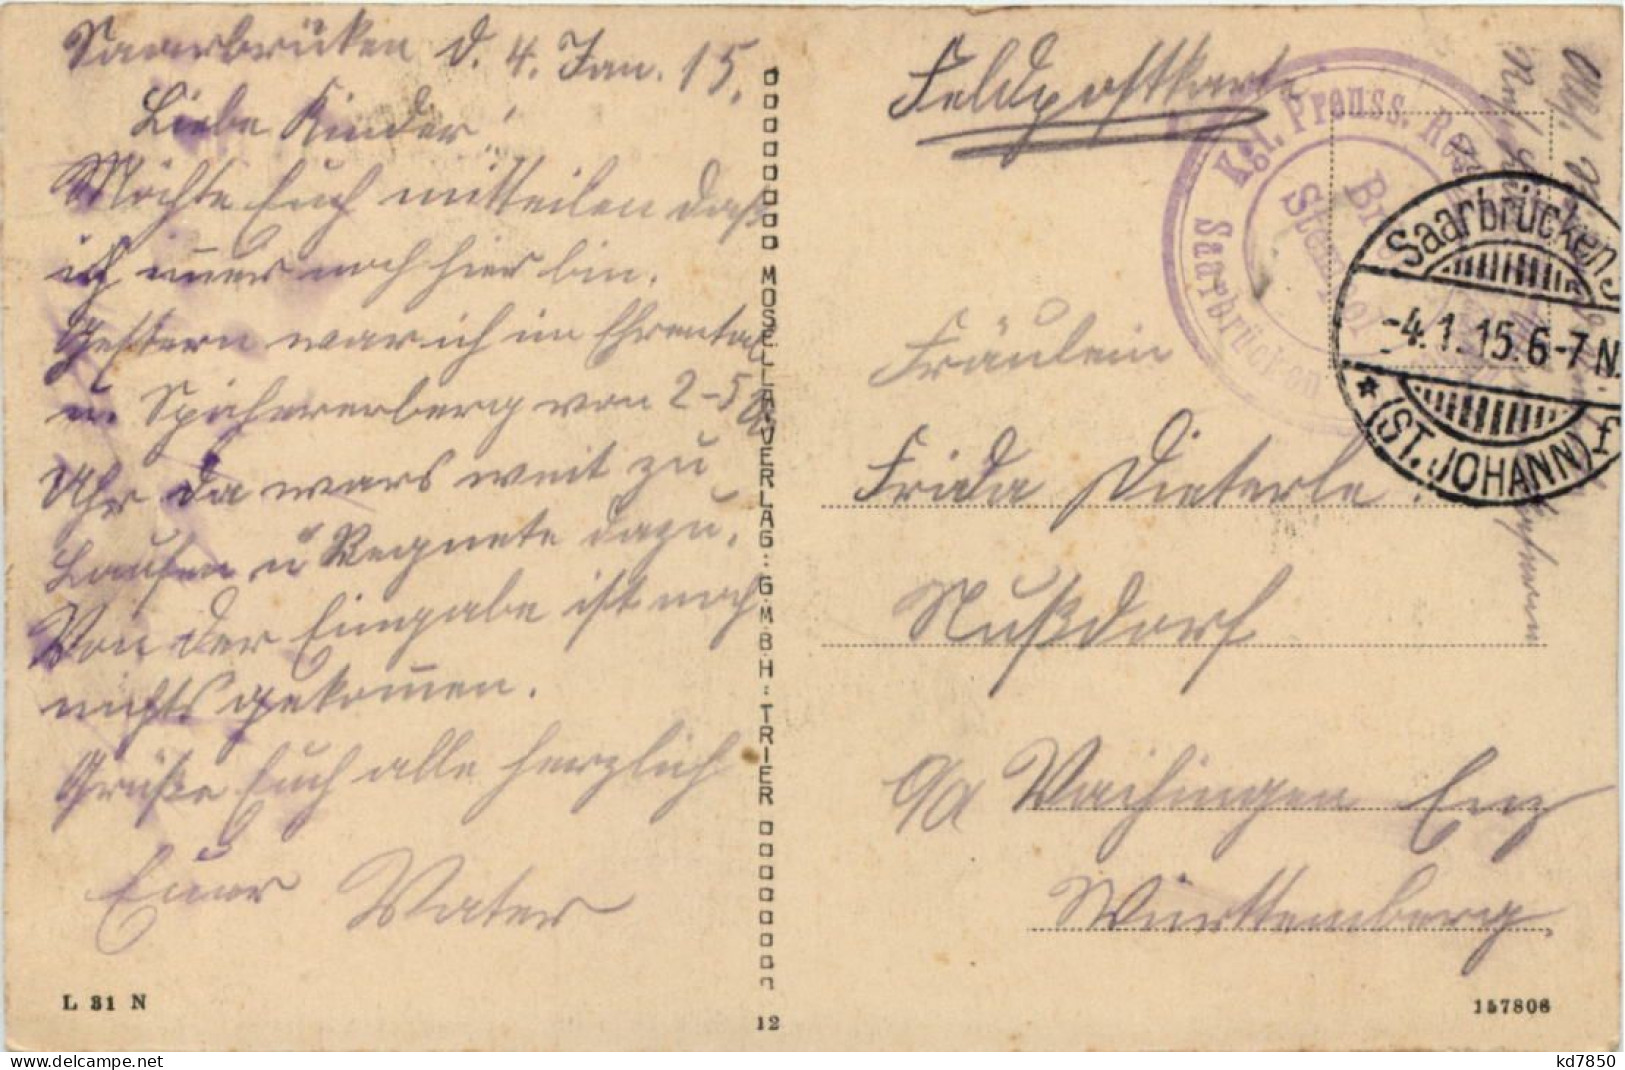 Saarbrücken d. 4. Jan. 15.
Liebe Kinder!
Möchte Euch mitteilen daß
ich immer noch hier bin.
Gestern war ich im Ehrental
u. Spichererberg von 2-5
Uhr da wars weit zu
Laufen u Regnete dazu.
Von der Eingabe ist noch
nichts gekommen.
Grüße Euch alle herzlich
Euer Vater
L 31 N
MOSELLA-VERLAG: G.M.B.H: TRIER
12
Feldpostkarte
Kgl. Preuss. Res
Saarbrücken
Saarbrücken
-4.1.15.6-7N.
(ST. JOHANN) f
Fräulein
Frida Dieterle.
Nußdorf
Vaihingen Enz
Württemberg.
157806
kd7850